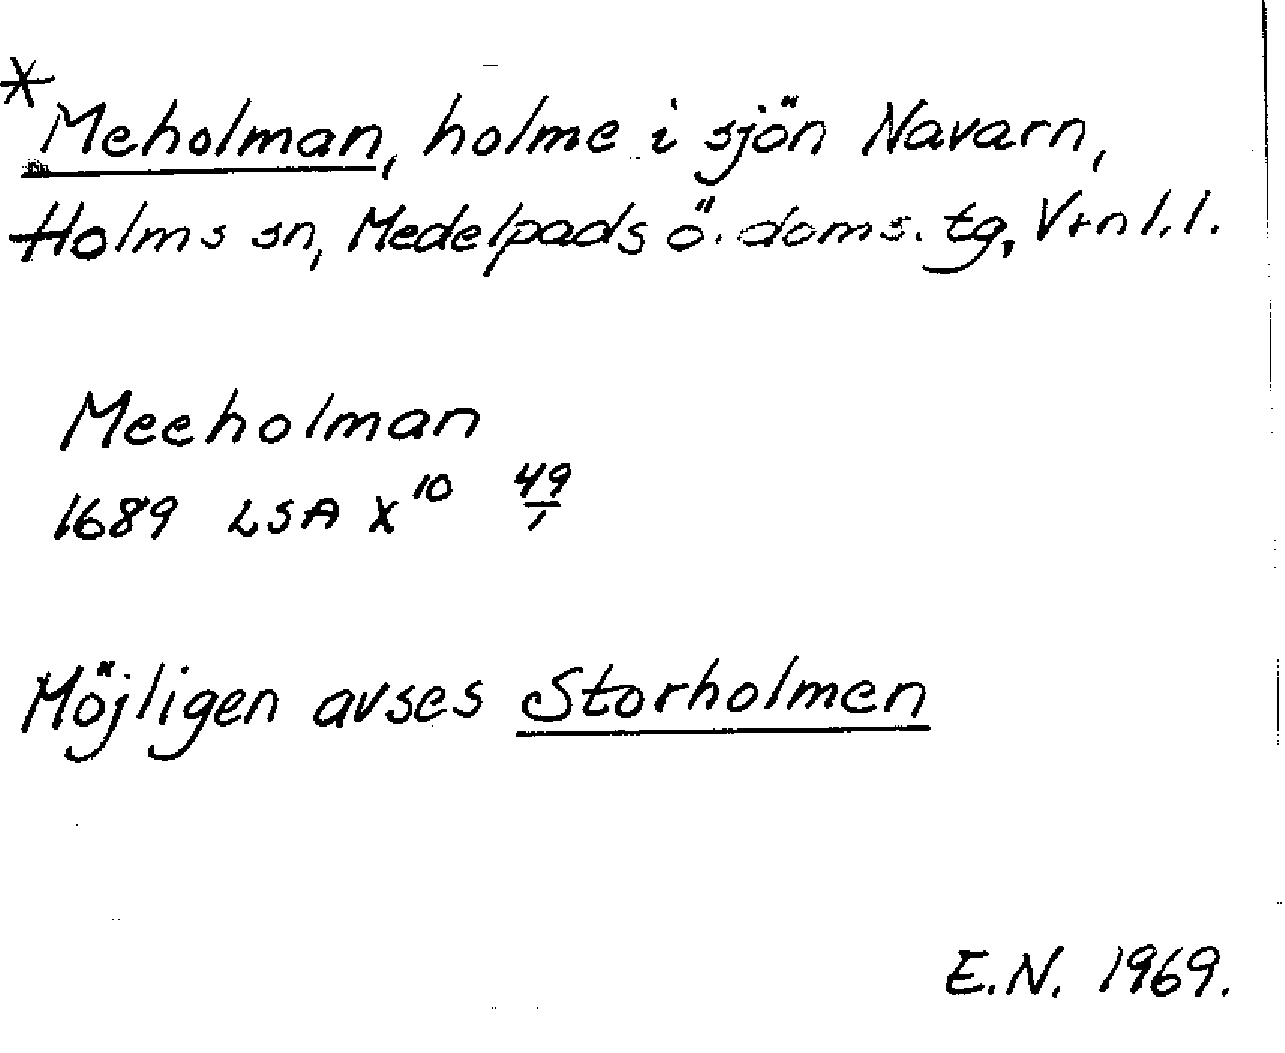 *Meholman, holme i sjön Navarn,
Holms sn, Medelpads ö. doms. tg, Vtnl. l.
Meeholman
1689 LSA X¹⁰ 49/1
Möjligen avses Storholmen
E.N. 1969.